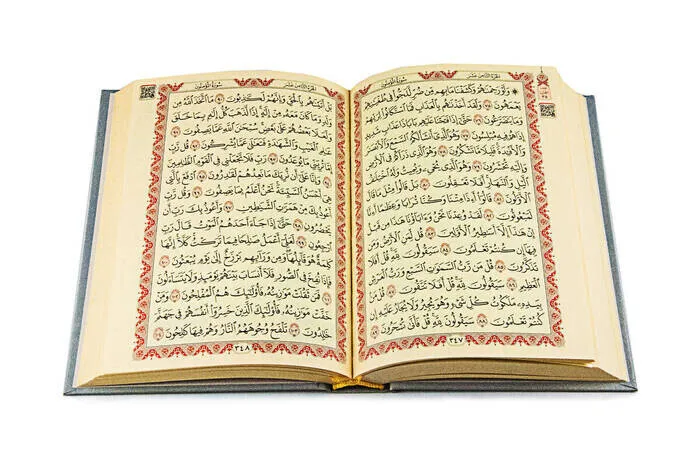 الجزء الثامن عشر
سورة المؤمنون
۞ وَلَوْ رَحِمْنَاهُمْ وَكَشَفْنَا مَا بِهِم مِّن ضُرٍّ لَّلَجُّوا فِي طُغْيَانِهِمْ
يَعْمَهُونَ ٧٥ وَلَقَدْ أَخَذْنَاهُم بِالْعَذَابِ فَمَا اسْتَكَانُوا لِرَبِّهِمْ
وَمَا يَتَضَرَّعُونَ ٧٦ حَتَّىٰ إِذَا فَتَحْنَا عَلَيْهِم بَابًا ذَا عَذَابٍ شَدِيدٍ
إِذَا هُمْ فِيهِ مُبْلِسُونَ ٧٧ وَهُوَ الَّذِي أَنشَأَ لَكُمُ السَّمْعَ وَالْأَبْصَارَ
وَالْأَفْئِدَةَ قَلِيلًا مَّا تَشْكُرُونَ ٧٨ وَهُوَ الَّذِي ذَرَأَكُمْ فِي الْأَرْضِ
وَإِلَيْهِ تُحْشَرُونَ ٧٩ وَهُوَ الَّذِي يُحْيِي وَيُمِيتُ وَلَهُ اخْتِلَافُ
اللَّيْلِ وَالنَّهَارِ أَفَلَا تَعْقِلُونَ ٨٠ بَلْ قَالُوا مِثْلَ مَا قَالَ
الْأَوَّلُونَ ٨١ قَالُوا أَإِذَا مِتْنَا وَكُنَّا تُرَابًا وَعِظَامًا أَإِنَّا
لَمَبْعُوثُونَ ٨٢ لَقَدْ وُعِدْنَا نَحْنُ وَآبَاؤُنَا هَٰذَا مِن قَبْلُ
إِنْ هَٰذَا إِلَّا أَسَاطِيرُ الْأَوَّلِينَ ٨٣ قُل لِّمَنِ الْأَرْضُ وَمَن
فِيهَا إِن كُنتُمْ تَعْلَمُونَ ٨٤ سَيَقُولُونَ لِلَّهِ قُلْ أَفَلَا
تَذَكَّرُونَ ٨٥ قُلْ مَن رَّبُّ السَّمَاوَاتِ السَّبْعِ وَرَبُّ الْعَرْشِ
الْعَظِيمِ ٨٦ سَيَقُولُونَ لِلَّهِ قُلْ أَفَلَا تَتَّقُونَ ٨٧ قُلْ مَن
بِيَدِهِ مَلَكُوتُ كُلِّ شَيْءٍ وَهُوَ يُجِيرُ وَلَا يُجَارُ عَلَيْهِ إِن
كُنتُمْ تَعْلَمُونَ ٨٨ سَيَقُولُونَ لِلَّهِ قُلْ فَأَنَّىٰ تُسْحَرُونَ ٨٩
٣٤٧
الجزء الثامن عشر
سورة المؤمنون
بَلْ أَتَيْنَاهُم بِالْحَقِّ وَإِنَّهُمْ لَكَاذِبُونَ ٩٠ مَا اتَّخَذَ اللَّهُ مِن
وَلَدٍ وَمَا كَانَ مَعَهُ مِنْ إِلَٰهٍ إِذًا لَّذَهَبَ كُلُّ إِلَٰهٍ بِمَا خَلَقَ
وَلَعَلَا بَعْضُهُمْ عَلَىٰ بَعْضٍ سُبْحَانَ اللَّهِ عَمَّا يَصِفُونَ ٩١
عَالِمِ الْغَيْبِ وَالشَّهَادَةِ فَتَعَالَىٰ عَمَّا يُشْرِكُونَ ٩٢ قُل رَّبِّ
إِمَّا تُرِيَنِّي مَا يُوعَدُونَ ٩٣ رَبِّ فَلَا تَجْعَلْنِي فِي الْقَوْمِ الظَّالِمِينَ
٩٤ وَإِنَّا عَلَىٰ أَن نُّرِيَكَ مَا نَعِدُهُمْ لَقَادِرُونَ ٩٥ ادْفَعْ بِالَّتِي
هِيَ أَحْسَنُ السَّيِّئَةَ نَحْنُ أَعْلَمُ بِمَا يَصِفُونَ ٩٦ وَقُل رَّبِّ
أَعُوذُ بِكَ مِنْ هَمَزَاتِ الشَّيَاطِينِ ٩٧ وَأَعُوذُ بِكَ رَبِّ أَن
يَحْضُرُونِ ٩٨ حَتَّىٰ إِذَا جَاءَ أَحَدَهُمُ الْمَوْتُ قَالَ رَبِّ
ارْجِعُونِ ٩٩ لَعَلِّي أَعْمَلُ صَالِحًا فِيمَا تَرَكْتُ كَلَّا إِنَّهَا
كَلِمَةٌ هُوَ قَائِلُهَا وَمِن وَرَائِهِم بَرْزَخٌ إِلَىٰ يَوْمِ يُبْعَثُونَ ١٠٠
فَإِذَا نُفِخَ فِي الصُّورِ فَلَا أَنسَابَ بَيْنَهُمْ يَوْمَئِذٍ وَلَا يَتَسَاءَلُونَ
١٠١ فَمَن ثَقُلَتْ مَوَازِينُهُ فَأُولَٰئِكَ هُمُ الْمُفْلِحُونَ ١٠٢ وَمَنْ
خَفَّتْ مَوَازِينُهُ فَأُولَٰئِكَ الَّذِينَ خَسِرُوا أَنفُسَهُمْ فِي جَهَنَّمَ
خَالِدُونَ ١٠٣ تَلْفَحُ وُجُوهَهُمُ النَّارُ وَهُمْ فِيهَا كَالِحُونَ ١٠٤
٣٤٨